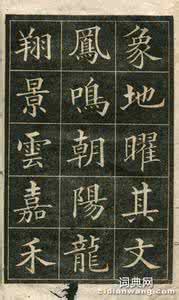 象地曜其文
鳳鳴朝陽龍
翔景雲嘉禾
词典网
cidianwang.com